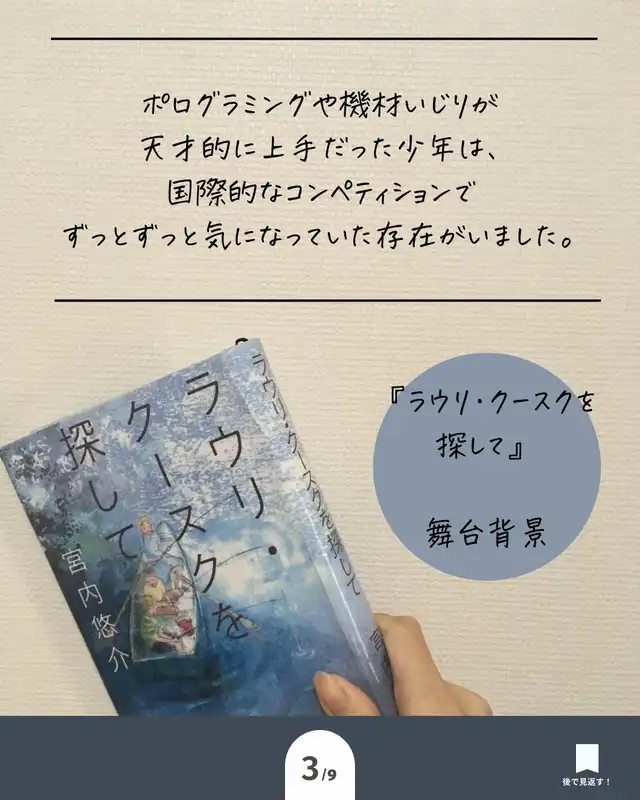 ポログラミングや機材いじりが
天才的に上手だった少年は、
国際的なコンペティションで
ずっとずっと気になっていた存在がいました。
ラウリ・
クースクを
探して
宮内悠介
ラウリ・クースクを探して
宮
『ラウリ・クースクを
探して』
舞台背景
3/9
後で見返す！